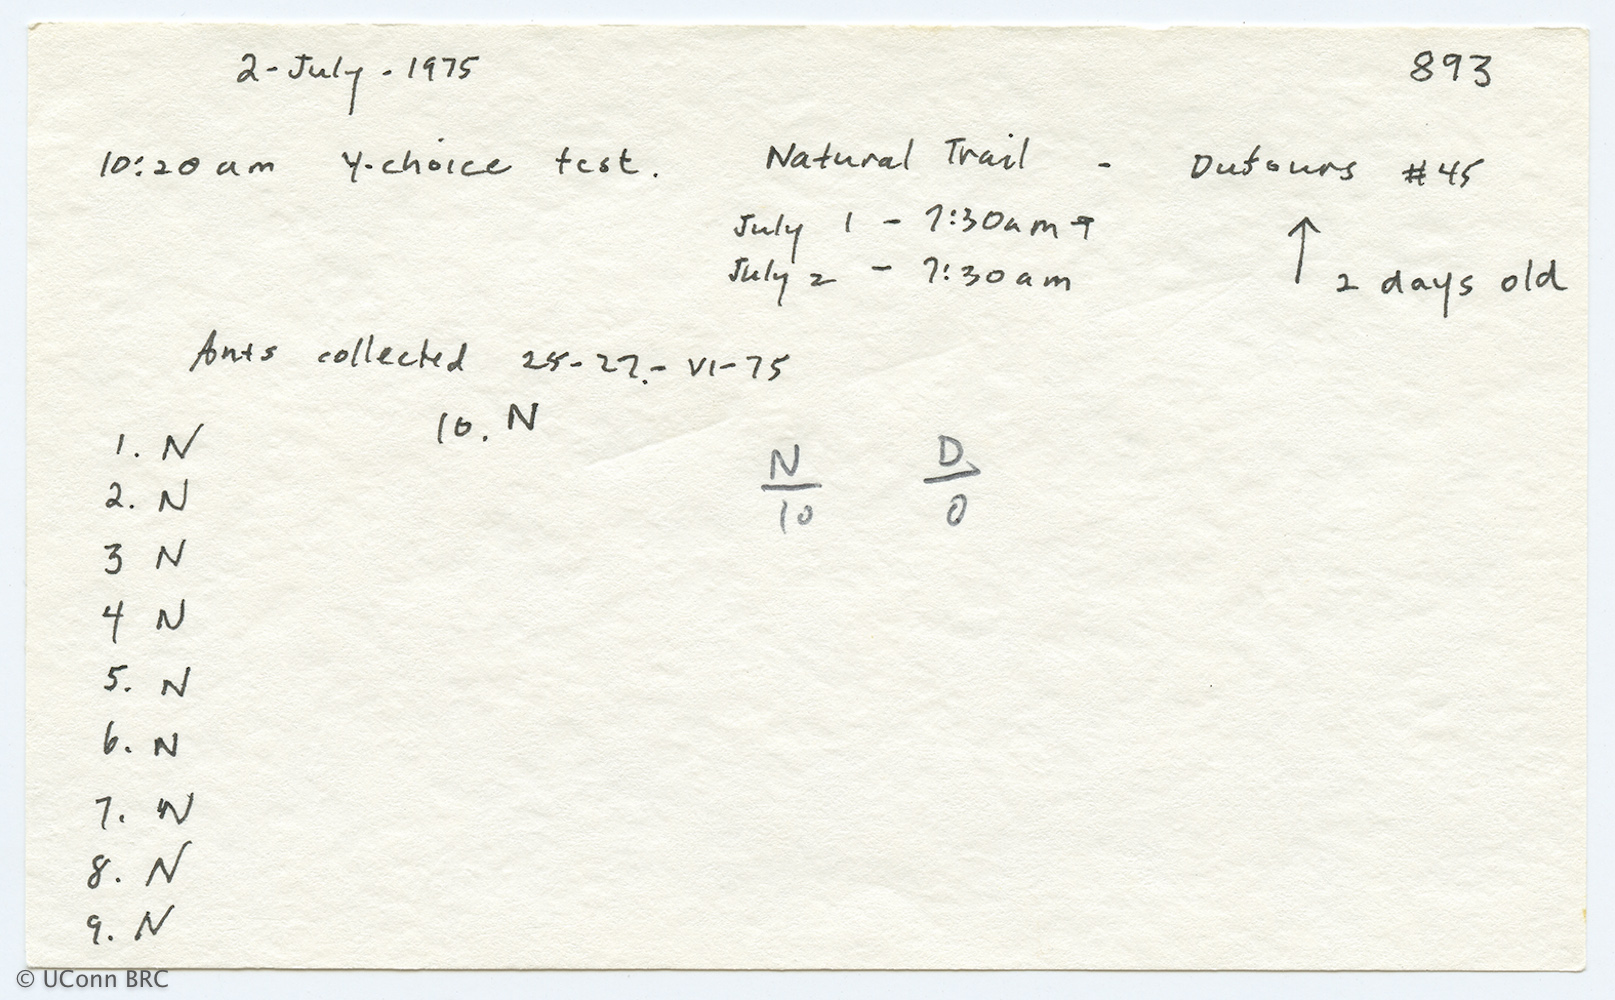 2-July-1975 893
10:20 am Y-choice test. Natural Trail - Dufours #45
July 1 - 7:30am →
July 2 - 7:30am ↑ 2 days old
Ants collected 25-27.-VI-75
1. N 10. N
2. N
3 N
4 N
5. N
6. N
7. N
8. N
9. N
N D
10 0
© UConn BRC